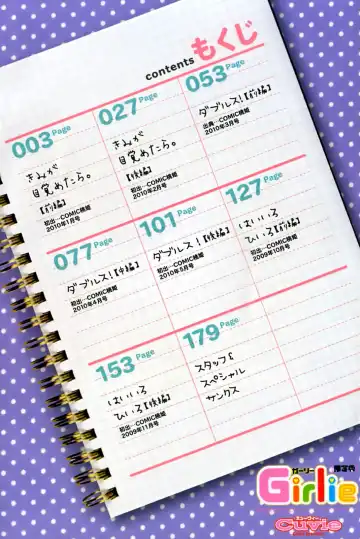 contents もくじ
003 Page
きみが
目覚めたら。
【前編】
初出…COMIC桃姫
2010年1月号
027 Page
きみが
目覚めたら。
【後編】
初出…COMIC桃姫
2010年2月号
053 Page
ダブルス!【前編】
出典…COMIC桃姫
2010年3月号
077 Page
ダブルス!【中編】
初出…COMIC桃姫
2010年4月号
101 Page
ダブルス!【後編】
初出…COMIC桃姫
2010年5月号
127 Page
はいいろ
ひいろ【前編】
初出…COMIC桃姫
2009年10月号
153 Page
はいいろ
ひいろ【後編】
初出…COMIC桃姫
2009年11月号
179 Page
スタッフ&
スペシャル
サンクス
ガーリー
Girlie
Cuvie